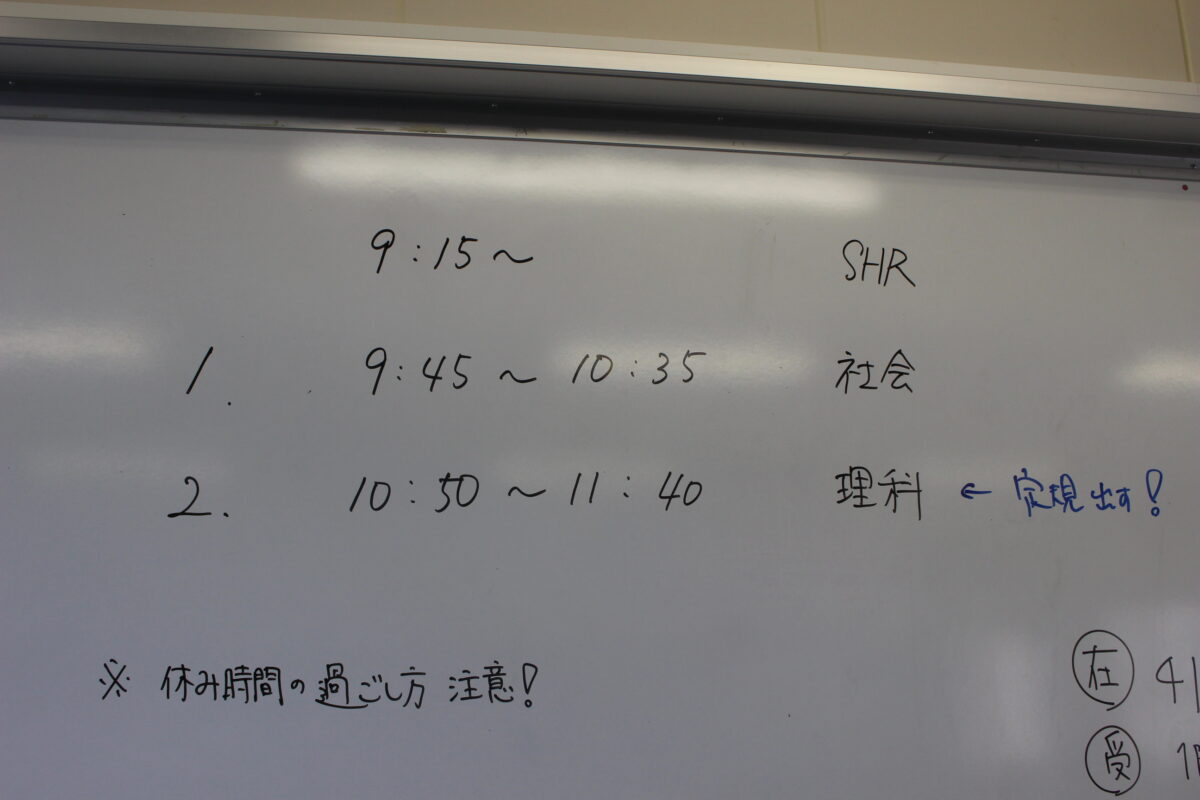 9:15～ SHR
1. 9:45～10:35 社会
2. 10:50～11:40 理科 ← 定規出す!
※ 休み時間の過ごし方 注意!
在 41
受 1